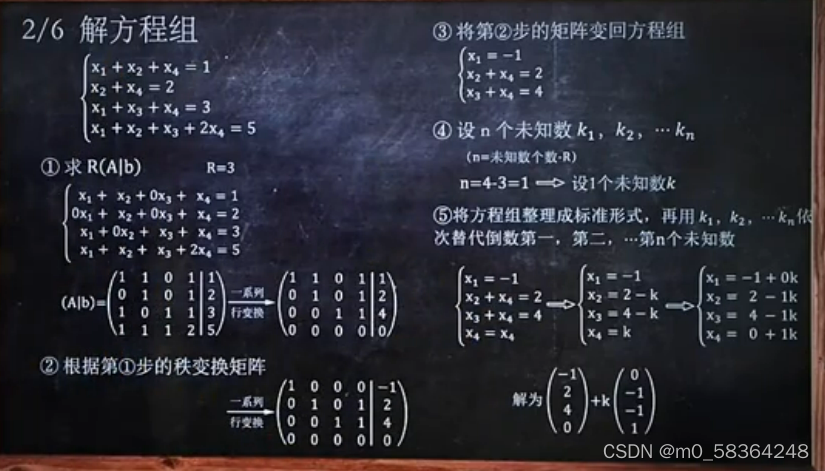 2/6 解方程组
x₁ + x₂ + x₄ = 1
x₂ + x₄ = 2
x₁ + x₃ + x₄ = 3
x₁ + x₂ + x₃ + 2x₄ = 5
① 求 R(A|b) R=3
x₁ + x₂ + 0x₃ + x₄ = 1
0x₁ + x₂ + 0x₃ + x₄ = 2
x₁ + 0x₂ + x₃ + x₄ = 3
x₁ + x₂ + x₃ + 2x₄ = 5
(A|b)=
1 1 0 1 | 1
0 1 0 1 | 2
1 0 1 1 | 3
1 1 1 2 | 5
一系列
行变换
1 1 0 1 | 1
0 1 0 1 | 2
0 0 1 1 | 4
0 0 0 0 | 0
② 根据第①步的秩变换矩阵
一系列
行变换
1 0 0 0 | −1
0 1 0 1 | 2
0 0 1 1 | 4
0 0 0 0 | 0
③ 将第②步的矩阵变回方程组
x₁ = −1
x₂ + x₄ = 2
x₃ + x₄ = 4
④ 设 n 个未知数 k₁，k₂，⋯ kₙ
(n=未知数个数-R)
n=4-3=1 ⟹ 设1个未知数k
⑤将方程组整理成标准形式，再用 k₁，k₂，⋯kₙ依
次替代倒数第一，第二，⋯第n个未知数
x₁ = −1
x₂ + x₄ = 2
x₃ + x₄ = 4
x₄ = x₄
⟹
x₁ = −1
x₂ = 2 − k
x₃ = 4 − k
x₄ = k
⟹
x₁ = −1 + 0k
x₂ = 2 − 1k
x₃ = 4 − 1k
x₄ = 0 + 1k
解为
−1
2
4
0
+k
0
−1
−1
1
CSDN @m0_58364248